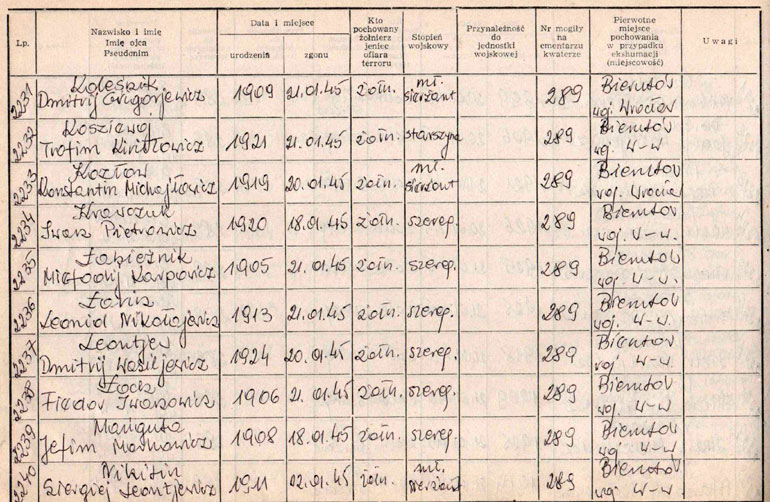 Lp.
Nazwisko i imię
Imię ojca
Pseudonim
Data i miejsce
urodzenia
zgonu
Kto
pochowany
żołnierz
jeniec
ofiara
terroru
Stopień
wojskowy
Przynależność
do
jednostki
wojskowej
Nr mogiły
na
cmentarzu
kwaterze
Pierwotne
miejsce
pochowania
w przypadku
ekshumacji
(miejscowość)
Uwagi
2231 Kolesnik
Dmitrij Grigorjewicz 1909 21.01.45 żołn. mł. sierżant 289 Bierutów
woj. Wrocław
2232
Trofim Kiriłłowicz 1921 21.01.45 żołn. starszyna 289 Bierutów
woj. W-w.
2233 Kozłow
Konstantin Michajłowicz 1919 20.01.45 żołn. mł. sierżant 289 Bierutów
woj.
2234 Krawczuk
Iwan Pietrowicz 1920 18.01.45 żołn. szereg. 289 Bierutów
woj. W-w.
2235 Łabieźnik
Karpowicz 1905 21.01.45 żołn. szereg. 289 Bierutów
woj. W-w.
2236
Leonid Nikołajewicz 1913 21.01.45 żołn. szereg. 289 Bierutów
woj. W-w.
2237 Leontjew
Dmitrij Wasiljewicz 1924 20.01.45 żołn. szereg. 289 Bierutów
woj. W-w.
2238
Fiedor Iwanowicz 1906 21.01.45 żołn. szereg. 289 Bierutów
woj. W-w.
2239 Manguta
Jefim Markowicz 1908 18.01.45 żołn. szereg. 289 Bierutów
woj. W-w.
2240 Nikitin
Siergiej Leontjewicz 1911 02.01.45 żołn. mł. sierżant 289 Bierutów
woj. W-w.